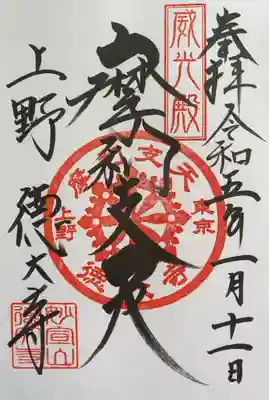 奉拝 令和五年一月十一日
威光殿
摩利支天
上野
徳大寺
東京
上野
妙宣山
徳大寺